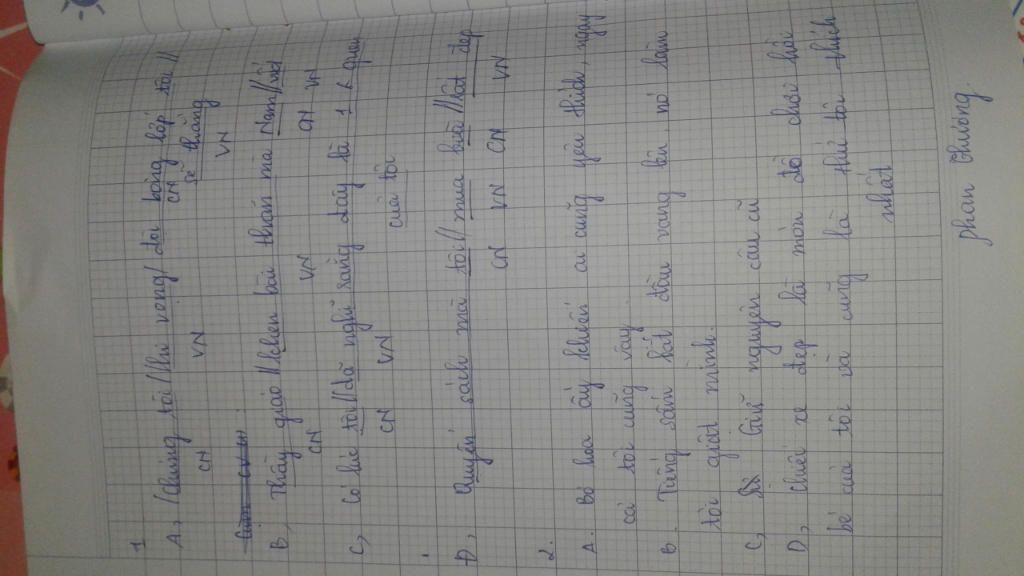 1
A, /Chúng tôi//hi vọng/ đội bóng lớp tôi//
CN VN CN sẽ thắng
VN
B, Thầy giáo//khen bài thơ mà Nam//viết
CN VN CN VN
C, Có lúc tôi//đã nghĩ rằng đây là 1 k quả
CN VN của tôi
D, Quyển sách mà tôi//mua bìa//rất đẹp
CN VN CN VN
2.
A. Bó hoa ấy khiến ai cũng yêu thích, ngay
cả tôi cũng vậy.
B. Tiếng sấm bắt đầu vang lên nó làm
tôi giật mình.
C, Giữ nguyên câu cũ
D, Chiếc xe đẹp là món đồ chơi hồi
bé của tôi và cũng là thứ tôi thích
nhất
phan Thương.